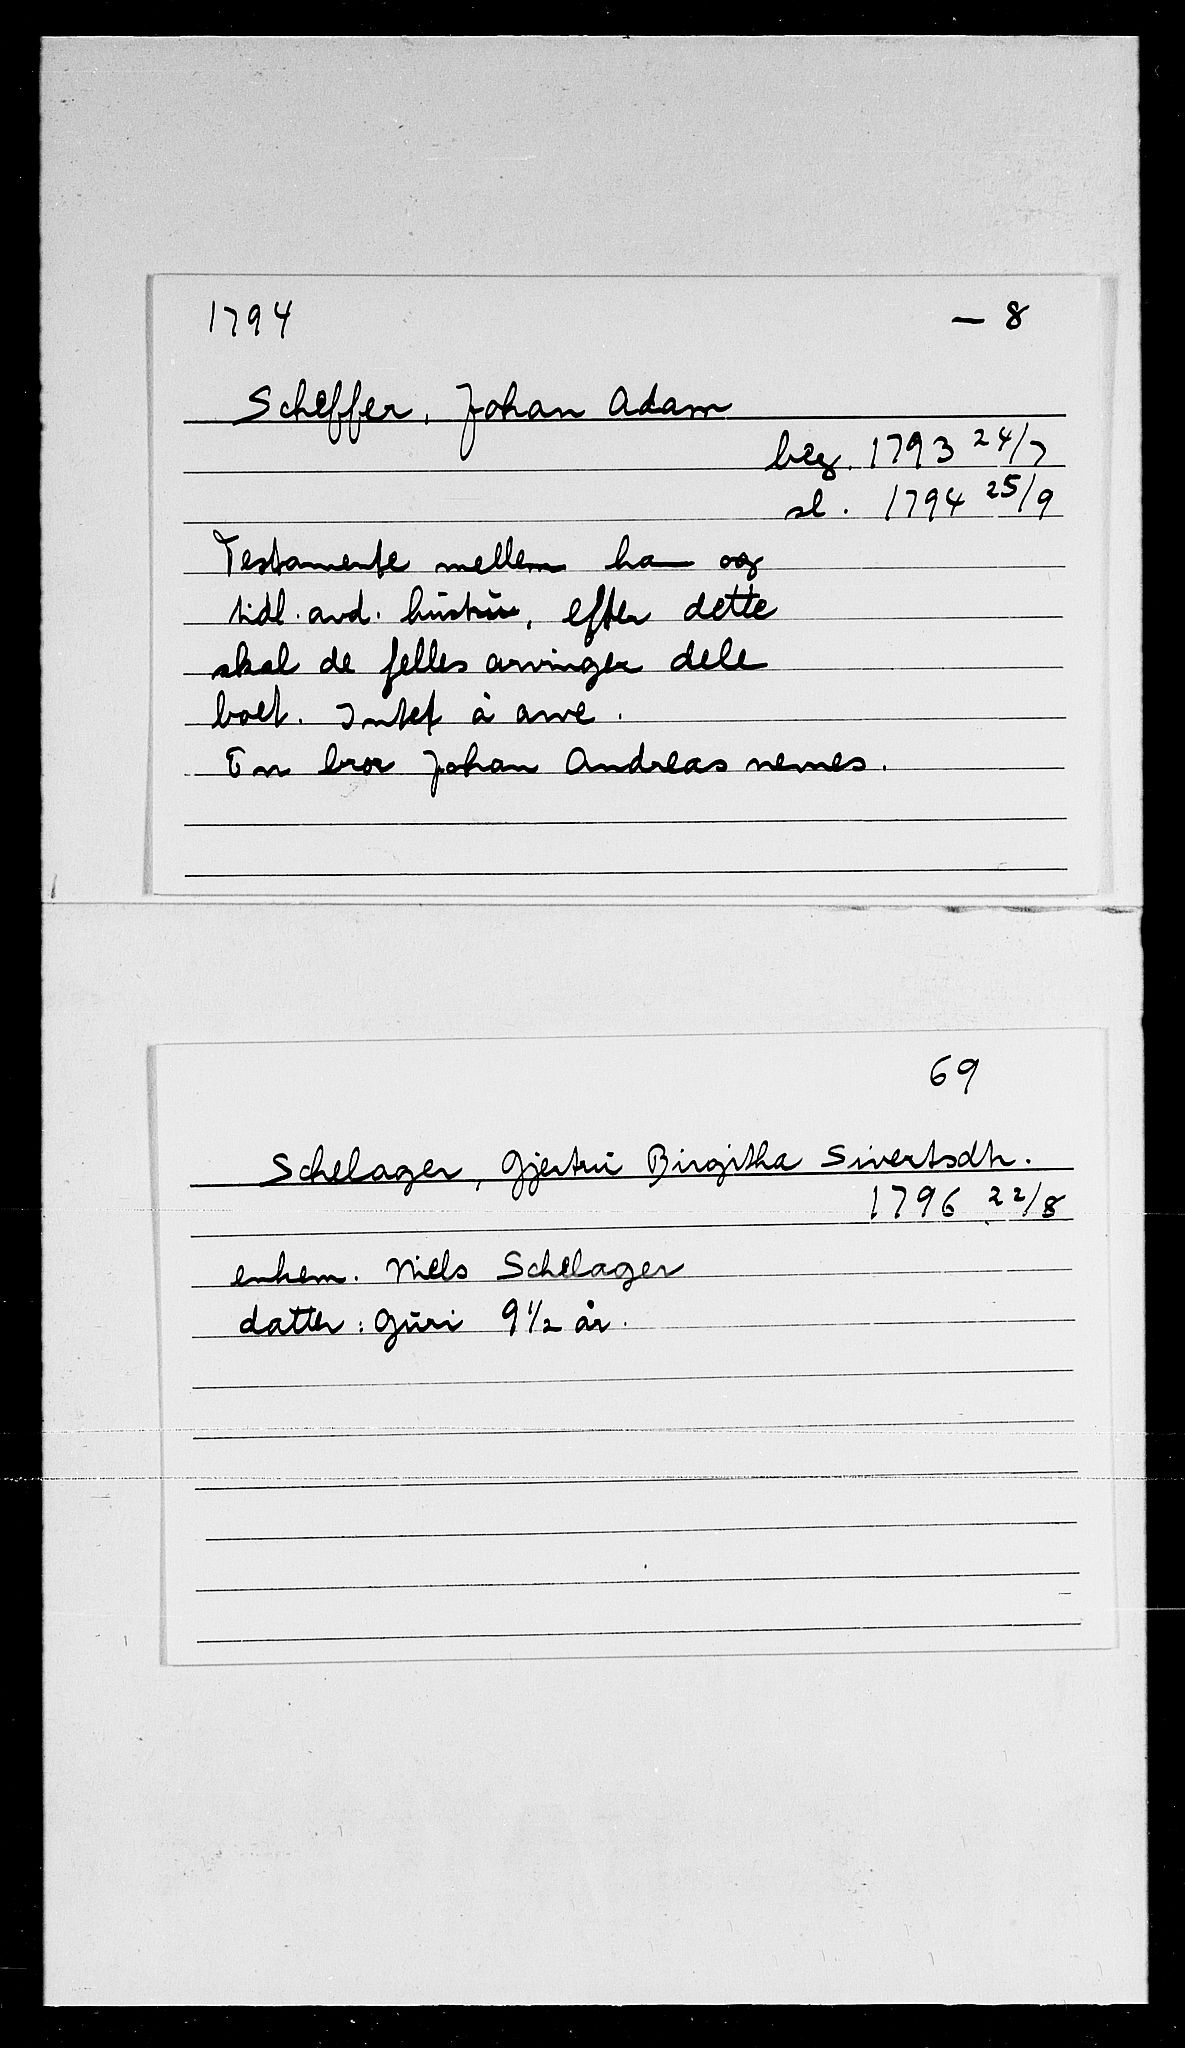 1794 — 8
Scheffer, Johan Adam
beg. 1793 24/7
sl. 1794 25/9
Testamente mellem ham og
tidl. avd. hustru, efter dette
skal de felles arvinger dele
boet. Intet å arve.
En bror Johan Andreas nevnes.
69
Schelager, Gjertru Birgitha Sivertsdtr.
1796 22/8
enkem. Niels Schelager
datter: Guri 9 1/2 år.